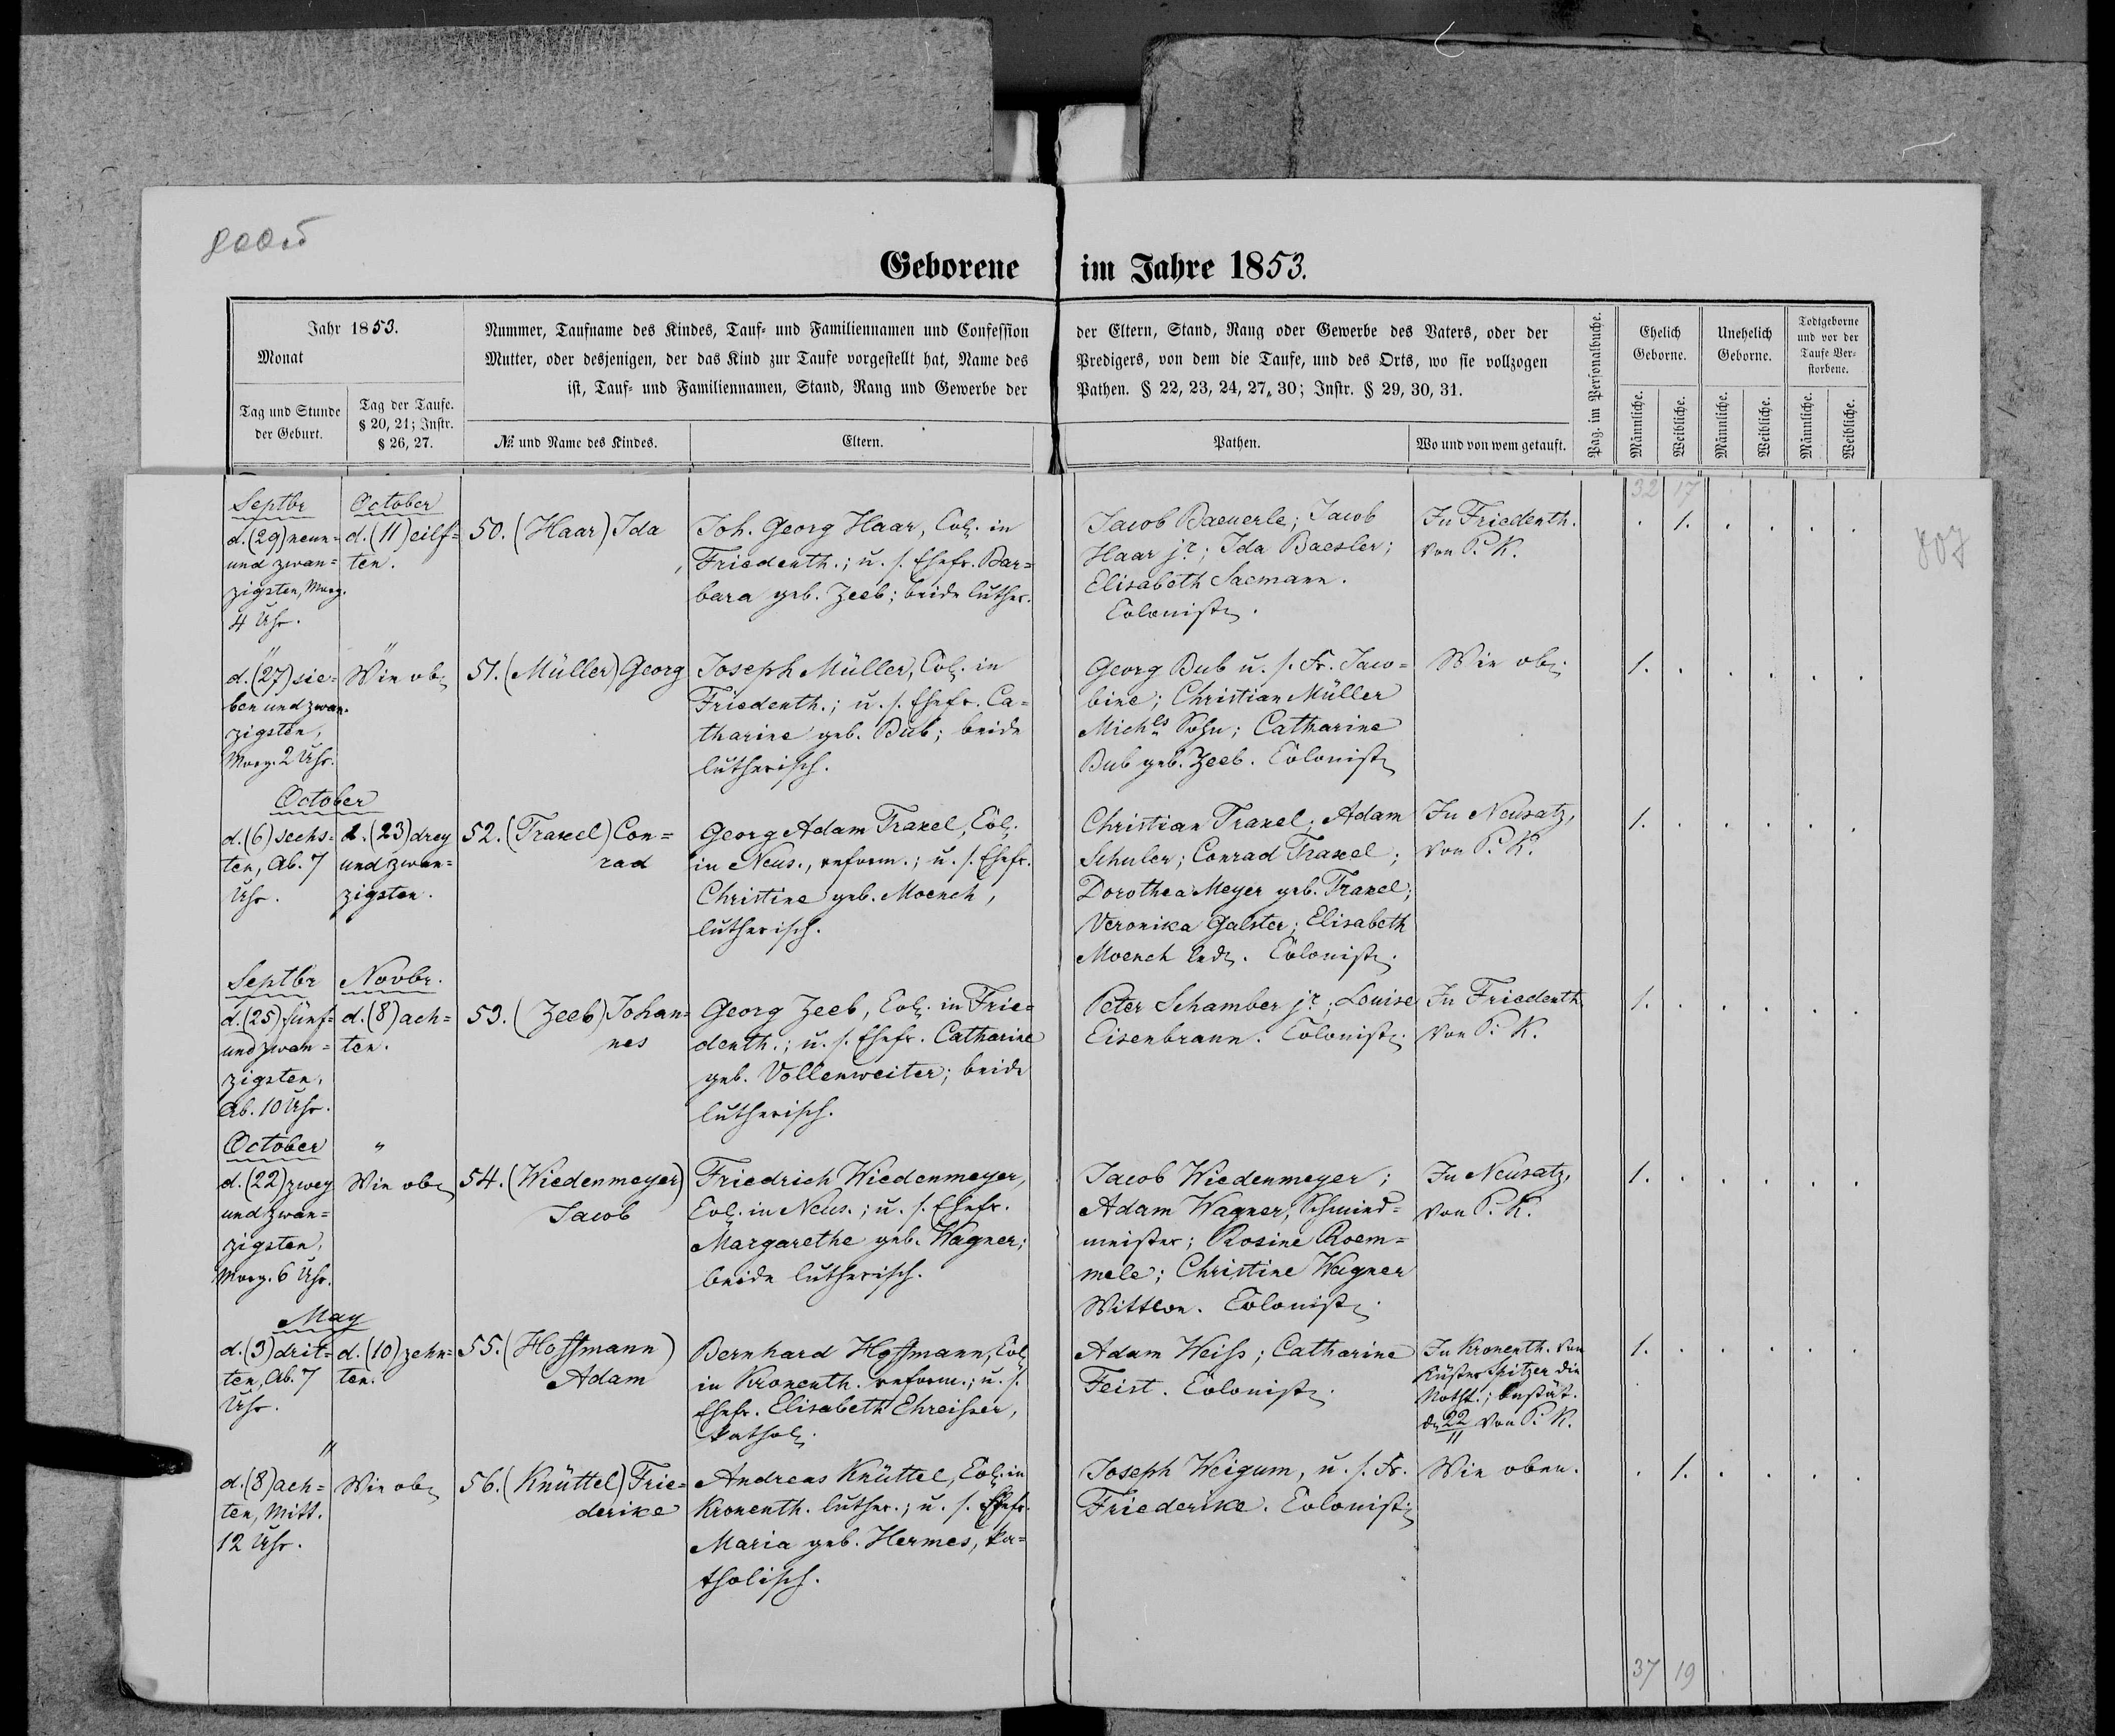 Geborene im Jahre 1853.
Jahr 1853.
Monat
Tag und Stunde
der Geburt.
Tag der Taufe.
§ 20, 21; Instr.
§ 26, 27.
Nummer, Taufname des Kindes, Tauf- und Familiennamen und Confession
Mutter, oder desjenigen, der das Kind zur Taufe vorgestellt hat, Name des
ist, Tauf- und Familiennamen, Stand, Rang und Gewerbe der
№ und Name des Kindes.
Eltern.
der Eltern, Stand, Rang oder Gewerbe des Vaters, oder der
Predigers, von dem die Taufe, und des Orts, wo sie vollzogen
Pathen. § 22, 23, 24, 27, 30; Instr. § 29, 30, 31.
Pathen.
Wo und von wem getauft.
Pag. im Personalbuche.
Ehelich
Geborne.
Unehelich
Geborne.
Todtgeborne
und vor der
Taufe Ver-
storbene.
Männliche.
Weibliche.
Männliche.
Weibliche.
Männliche.
Weibliche.
32 17
807
Septbr
d. (29) neun-
und zwan-
zigsten, Morg.
4 Uhr.
October
d. (11) eilf-
ten.
50. (Haar) Ida
Joh. Georg Haar, Col. in
Friedenth.; u. s. Ehefr. Bar-
bara geb. Zeeb; beide luther.
Jacob Baeuerle; Jacob
Haar jr; Ida Baesler;
Elisabeth Saemann.
Coloniste.
In Friedenth.
von P. K.
. 1. . . . .
"
d. (27) sie-
ben und zwan-
zigsten,
Morg. 2 Uhr.
"
Wie ob.
51. (Müller) Georg
Joseph Müller, Col. in
Friedenth.; u. s. Ehefr. Ca-
tharine geb. Bub; beide
lutherisch.
Georg Bub u. s. Fr. Jaco-
bine; Christian Müller
Michls Sohn; Catharine
Bub geb. Zeeb. Colonist.
Wie ob.
1. . . . . .
October
d. (6) sechs-
ten, Ab. 7
Uhr.
d. (23) drey
und zwan-
zigsten.
52. (Traxel) Con-
rad
Georg Adam Traxel, Col.
in Neus., reform.; u. s. Ehefr.
Christine geb. Moench,
lutherisch.
Christian Traxel; Adam
Schuler; Conrad Traxel;
Dorothea Meyer geb. Traxel;
Veronika Galster; Elisabeth
Moench led. Colonist.
In Neusatz,
von P. K.
1. . . . . .
Septbr
d. (25) fünf-
und zwan-
zigsten,
Ab. 10 Uhr.
Novbr.
d. (8) ach-
ten.
53. (Zeeb) Johan-
nes
Georg Zeeb, Col. in Frie-
denth.; u. s. Ehefr. Catharine
geb. Vollenweiter; beide
lutherisch.
Peter Schamber jr; Louise
Eisenbraun. Colonist.
In Friedenth
von P. K.
1. . . . . .
October
d. (22) zwey
und zwan-
zigsten,
Morg. 6 Uhr.
"
Wie ob.
54. (Wiedenmeyer)
Jacob
Friedrich Wiedenmeyer,
Col. in Neus.; u. s. Ehefr.
Margarethe geb. Wagner;
beide lutherisch.
Jacob Wiedenmeyer;
Adam Wagner, Schmied-
meister; Rosine Roem-
mele; Christine Wagner
Wittwe. Colonist.
In Neusatz,
von P. K.
1. . . . . .
May
d. (3) drit-
ten, Ab. 7
Uhr.
d. (10) zehn-
ten.
55. (Hoffmann)
Adam
Bernhard Hoffmann, Col.
in Kronenth. reform.; u. s.
Ehefr. Elisabeth Ehreiser,
kathol.
Adam Weiss; Catharine
Feist. Colonist.
In Kronenth. von
Küster Spitzer die
Notht.; bestät.
d. 22/11 von P. K.
1. . . . . .
"
d. (8) ach-
ten, Mitt.
12 Uhr.
Wie ob.
56. (Knüttel) Frie-
derike
Andreas Knüttel, Col. in
Kronenth. luther.; u. s. Ehefr.
Maria geb. Hermes, ka-
tholisch.
Joseph Weigum, u. s. Fr.
Friederike. Colonist.
Wie oben.
. 1. . . . .
37 19